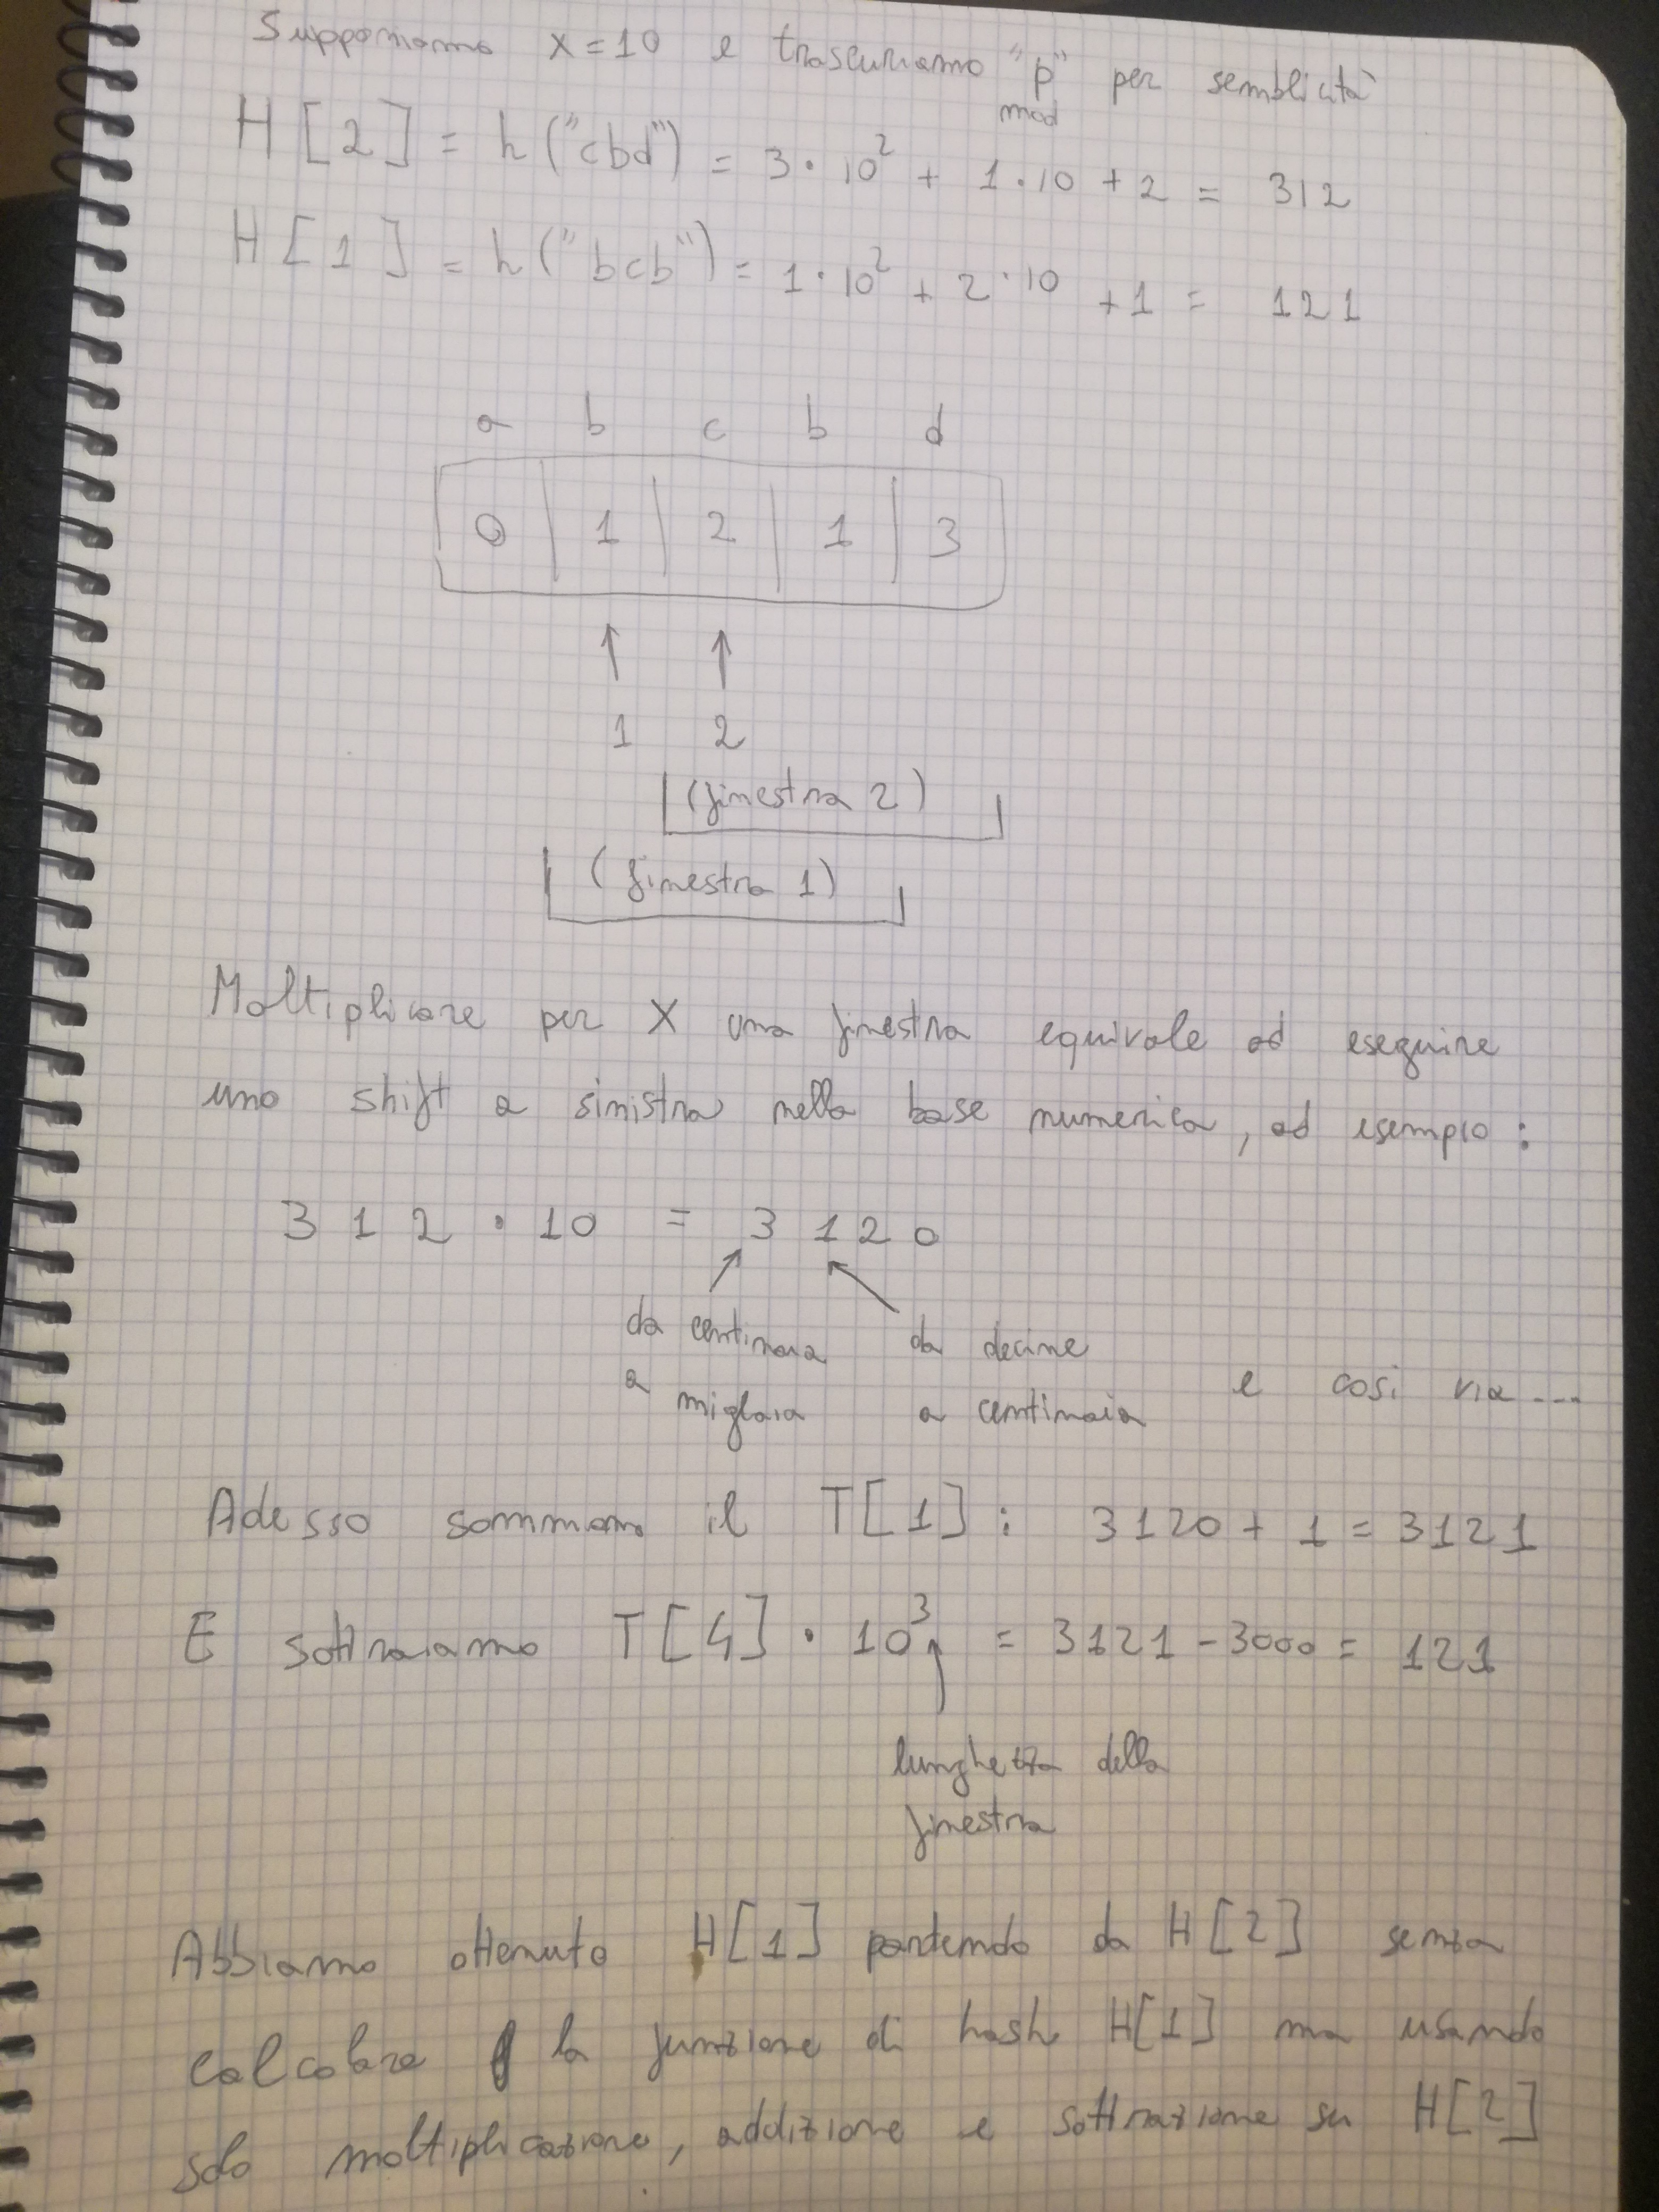 Supponiamo x=10 e trascuriamo "p" per semblicità
mod
H[2] = h("cbd") = 3·10² + 1·10 + 2 = 312
H[1] = h("bcb") = 1·10² + 2·10 + 1 = 121
a b c b d
0 | 1 | 2 | 1 | 3
↑ ↑
1 2
(finestra 2)
(finestra 1)
Moltiplicare per X una finestra equivale ad eseguire
uno shift a sinistra nella base numerica, ad esempio:
312 · 10 = 3120
da centinaia da decine
a migliaia a centinaia e cosi via ...
Adesso sommiamo il T[1]: 3120 + 1 = 3121
E sottraiamo T[4] · 10³ = 3121 - 3000 = 121
lunghezza della
finestra
Abbiamo ottenuto H[1] partendo da H[2] senza
calcolare la funzione di hash H[1] ma usando
solo moltiplicazione, addizione e sottrazione su H[2]